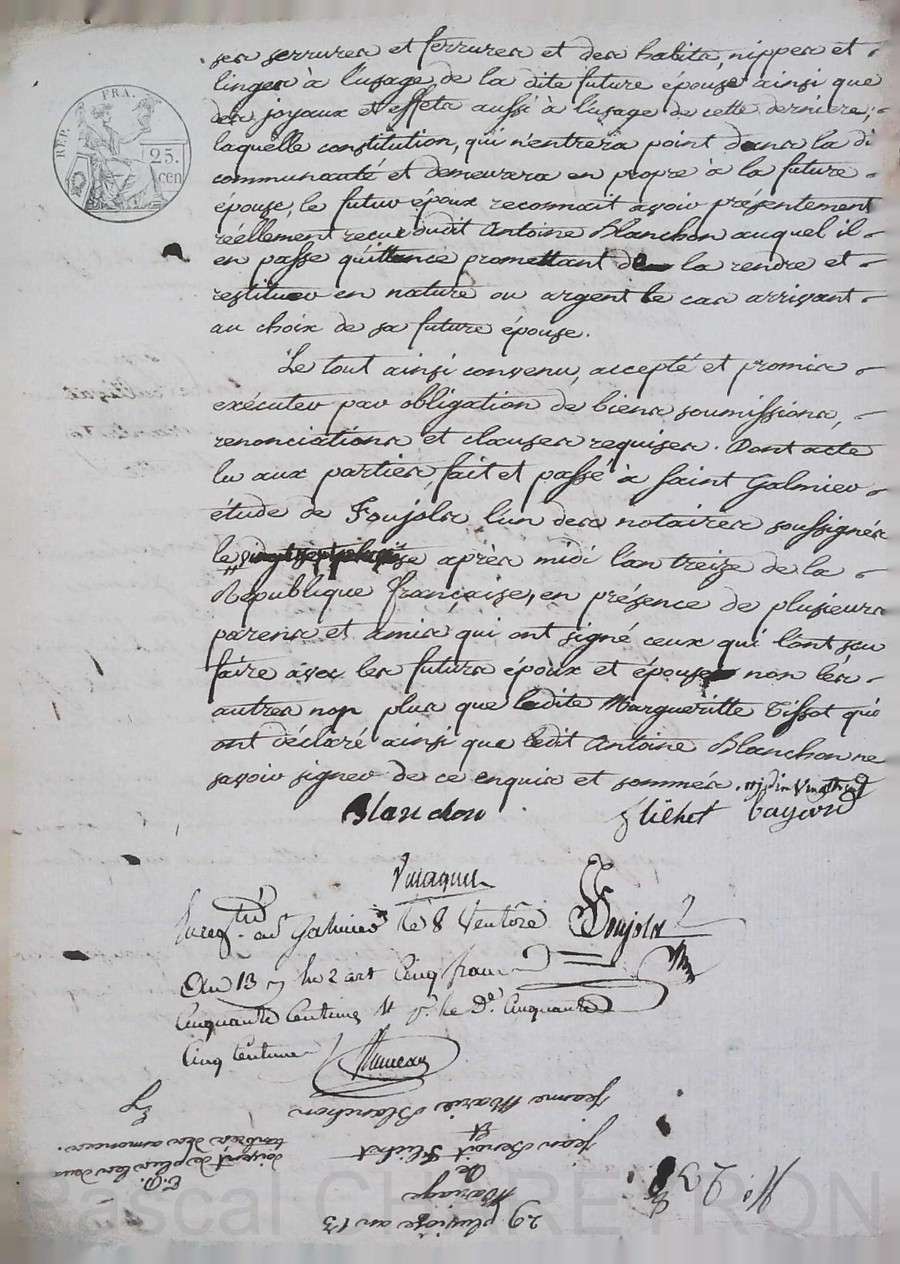 ses serrures et ferrures et des habits, nippes et
linges à l'usage de la dite future épouse ainsi que
des joyaux et effets aussi à l'usage de cette derniere;
laquelle constitution, qui n'entrera point dans la di
communauté et demeurera en propre à la future
épouse, le futur époux reconnait avoir présentement
réellement recue dudit Antoine Blanchon auquel il
en passe quittance promettant de la rendre et
restituer en nature ou argent le cas arrivant
au choix de sa future épouse.
Le tout ainsi convenu, accepté et promis
exécuter par obligation de biens soumissions,
renonciations et clauses requises. Dont acte
lu aux parties, fait et passé à Saint Galmier
étude de Foujols l'un des notaires soussignés
le après midi l'an treize de la
République française, en présence de plusieurs
parens et amis qui ont signé ceux qui l'ont su
faire avec les futurs époux et épouse non les
autres non plus que ladite Margueritte Tissot qui
ont déclaré ainsi que ledit Antoine Blanchon ne
savoir signer de ce enquis et sommés.
Blanchon
flichet
Foujols
Enregtré au Galmier le 8 Ventôse
an 13 Cinq francs
Cinquante Centimes Cinquante
Cinq Centimes
REP. FRA.
25.
cen
N° 23
29 pluviose an 13
Mariage
de
jean Benoit flichet
Et
jeanne Marie Blanchon
doivent de plus les deux
timbres des annonces.
Pascal CHARETRON